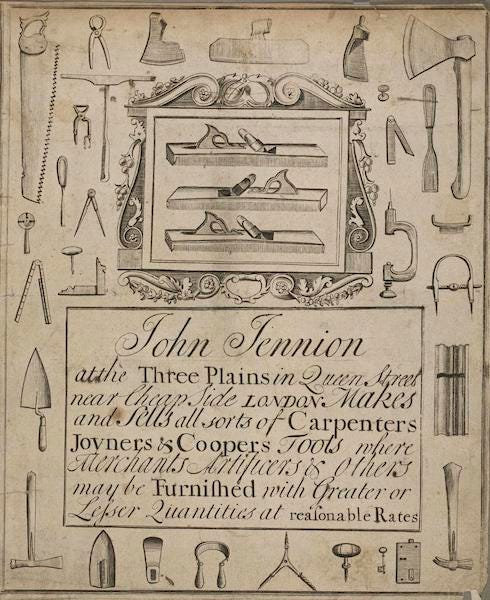 John Jennion
at the Three Plains in Queen Street
near Cheap Side LONDON. Makes
and Sells all sorts of Carpenters
Joyners & Coopers Tools where
Merchants Artificers & Others
may be Furnished with Greater or
Lesser Quantities at reasonable Rates